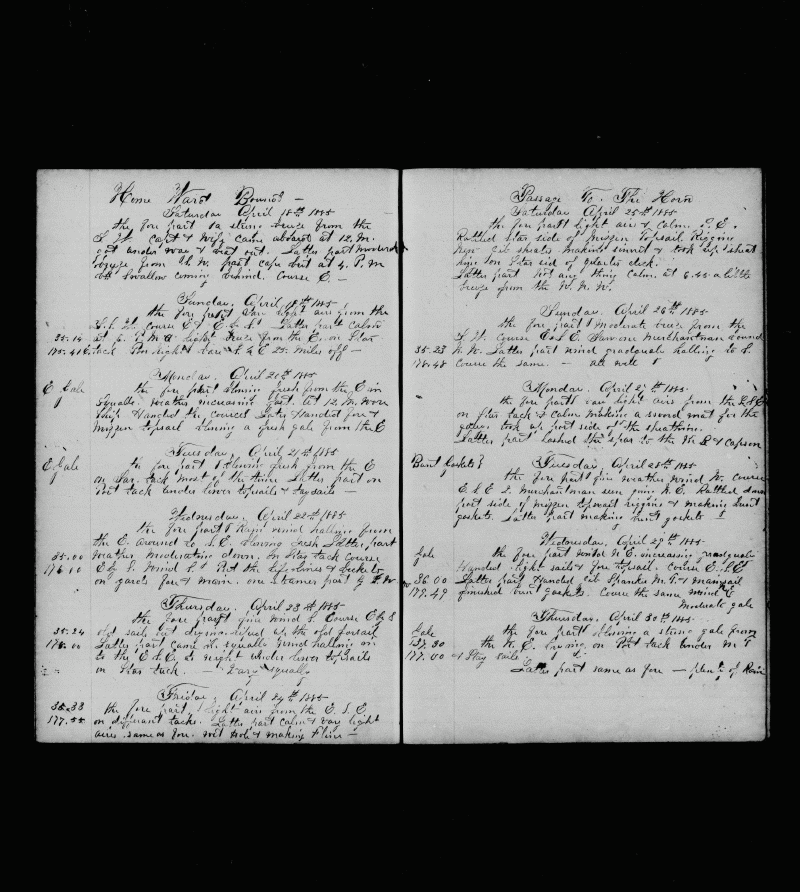 Home Ward Bound —
Saturday April 18th 1885
the fore part a strong breeze from the
S. W. Capt & Wife came aboard at 12. M.
got under way & beat out. Latter part moderate
breeze from the W. past cape but at 4. P.M
Swallow coming behind. Course E. —
Sunday, April 19th 1885
the fore part light airs from the
S. W. course E & E. by S. Latter part calm
35.14 at 6 P.M. a light breeze from the E. on Star
175.41 E. tack 25. miles off —
Monday, April 20th 1885
E Gale the fore part blowing fresh from the E in
squalls weather increasing fast. at 12 M. Wore
Ship Handed the courses Later Handed fore &
mizzen topsail blowing a fresh gale from the E
Tuesday, April 21st 1885
E. Gale the fore part blowing fresh from the E
on Star. tack most of the time Latter part on
Port tack under lower topsails & staysails —
Wednesday, April 22nd 1885
the fore part Rain wind halling from
the E. around to S. E. blowing fresh Latter part
35.00 weather moderating down. on Star tack course
176.10 E by S. Wind S. Put the life lines & beckets
on yards fore & main. one steamer past
Thursday, April 23rd 1885
the fore part fine wind S. Course E by S
35.24 old sails out drying. old foresail
178.00 Latter part came in squally wind halling
to the E & E. at night under lower topsails
on Star tack. — squally
Friday, April 24th 1885
35.33 the fore part light airs from the E. S. E.
177.55 on different tacks. Latter part calm & very light
airs same as fore. & making

Passage To The Horn
Saturday April 25th 1885
the fore part light airs & calm. S. E.
Rattled star side of mizzen topsail Rigging
New jib sheets making sennit & took up sheat
ing on Star side of quarter deck.
Latter part not any thing calm. at 6.45 a little
breeze from the W. N. W.
Sunday, April 26th 1885
the fore part moderate breeze from the
N. W. Course E & E. Saw one merchantman bound
35.23 N. W. Latter part wind gradually halling to S.
178.48 Course the same. — all well
Monday, April 27th 1885
the fore part very light airs from the
on tack & calm making a sword mat for the
took up port side of the sheathing.
Latter part Lashed the spar to the & capson
Bunt Gaskets Tuesday, April 28th 1885
the fore part fine weather wind N. course
E & E S. Merchantman seen going N.E. Rattled down
port side of mizzen topmast rigging & making bunt
gaskets. Latter part making bunt gaskets
Wednesday, April 29th 1885
Gale the fore part wind N E. increasing gradually
Handed light sails & fore topsail. Course E. S E
36.00 Latter part Handed Jib Spanker M. T. & mainsail
179.49 finished bunt gaskets. Course the same wind N E
Moderate gale
Thursday, April 30th 1885
Gale the fore part blowing a strong gale from
37.30 the N. E. on Port tack under M T
177.00 & Stay sails
Latter part same as fore — plenty of Rain